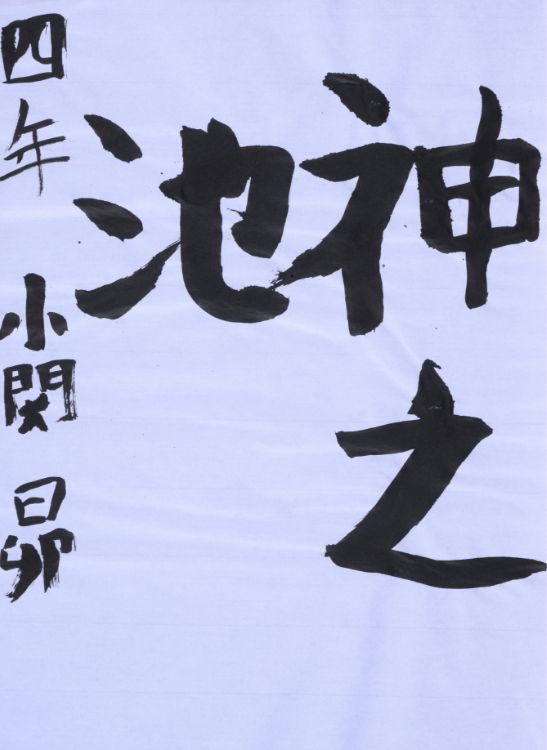 神之
池
四年 小関 昴